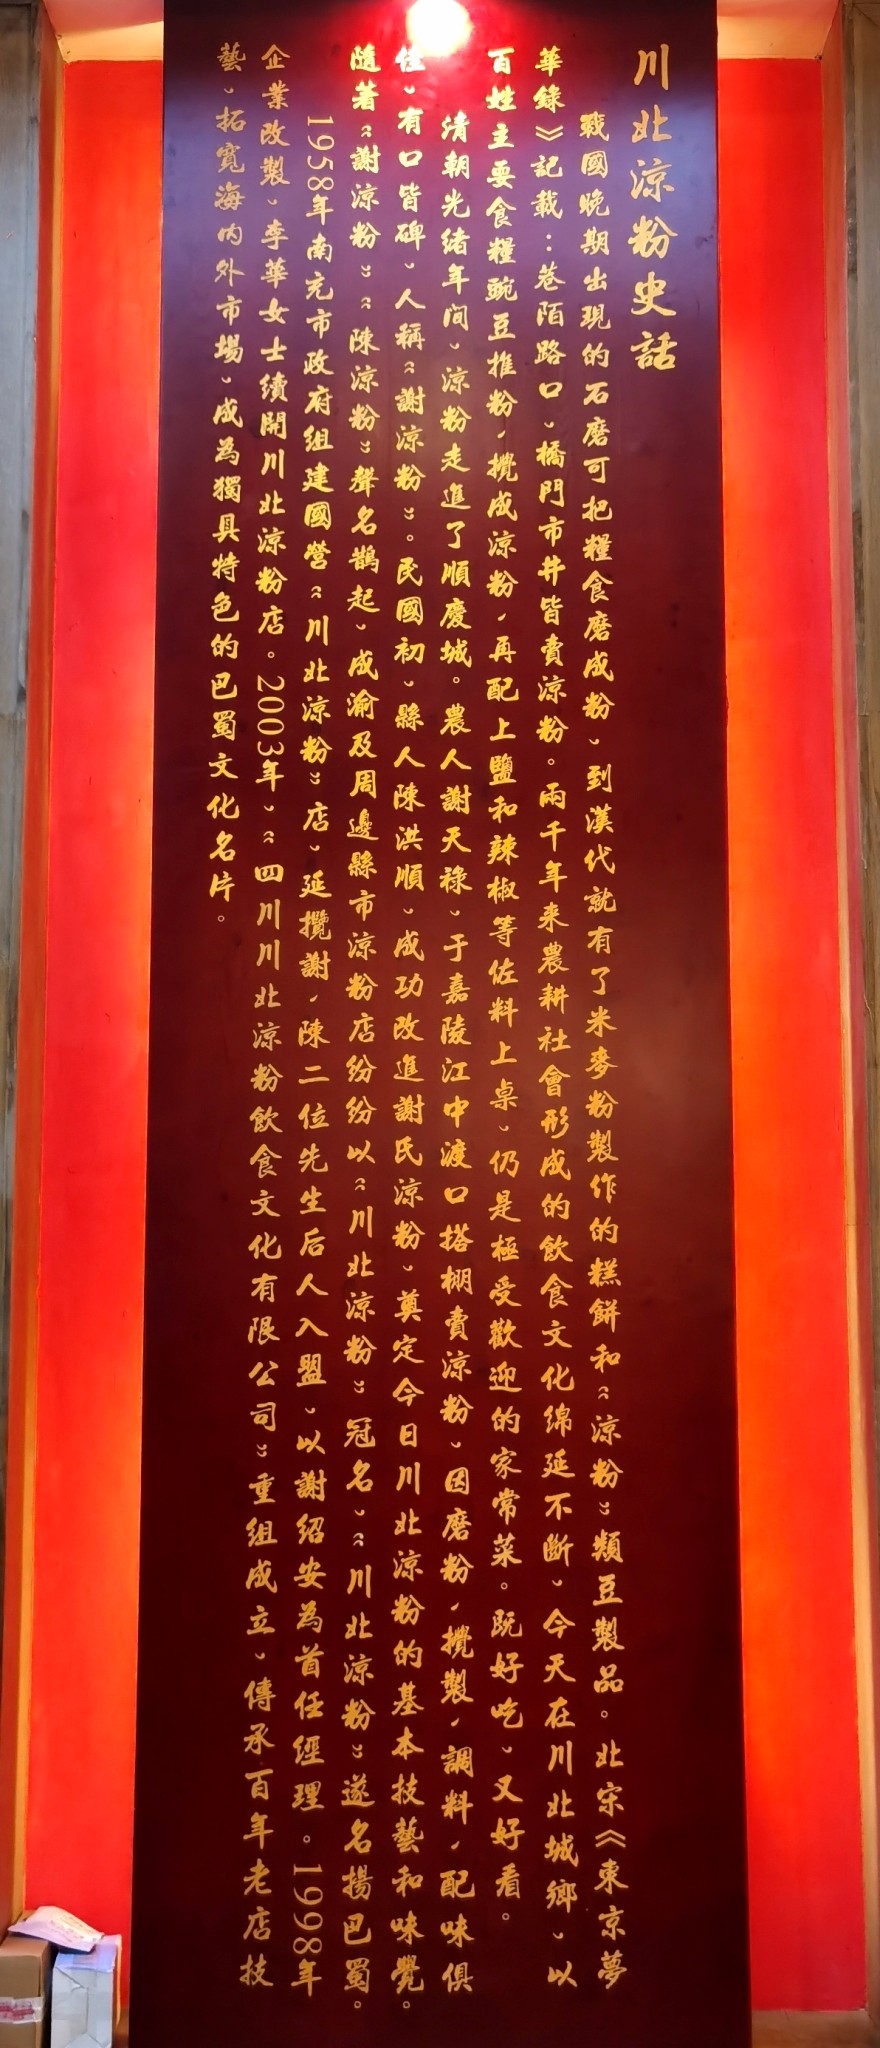 川北涼粉史話
戰國晚期出現的石磨可把糧食磨成粉、到漢代就有了米麥粉製作的糕餅和“涼粉”類豆製品。北宋《東京夢
華錄》記載：巷陌路口、橋門市井皆賣涼粉。兩千年來農耕社會形成的飲食文化綿延不斷、今天在川北城鄉、以
百姓主要食糧豌豆推粉，攪成涼粉，再配上鹽和辣椒等佐料上桌、仍是極受歡迎的家常菜。既好吃、又好看。
清朝光緒年间、涼粉走進了順慶城。農人謝天祿、于嘉陵江中渡口搭棚賣涼粉、因磨粉，攪製，調料，配味俱
佳、有口皆碑、人稱“謝涼粉”。民國初、縣人陳洪順、成功改進謝氏涼粉、奠定今日川北涼粉的基本技藝和味覺。
隨著“謝涼粉”、“陳涼粉”聲名鵲起、成渝及周邊縣市涼粉店纷纷以“川北涼粉”冠名、“川北涼粉”遂名揚巴蜀。
1958年南充市政府組建國營“川北涼粉”店、延攬謝，陳二位先生后人入盟、以謝紹安為首任經理。1998年
企業改製、李華女士續開川北涼粉店。2003年、“四川川北涼粉飲食文化有限公司”重組成立、傳承百年老店技
藝、拓寬海内外市場、成為獨具特色的巴蜀文化名片。